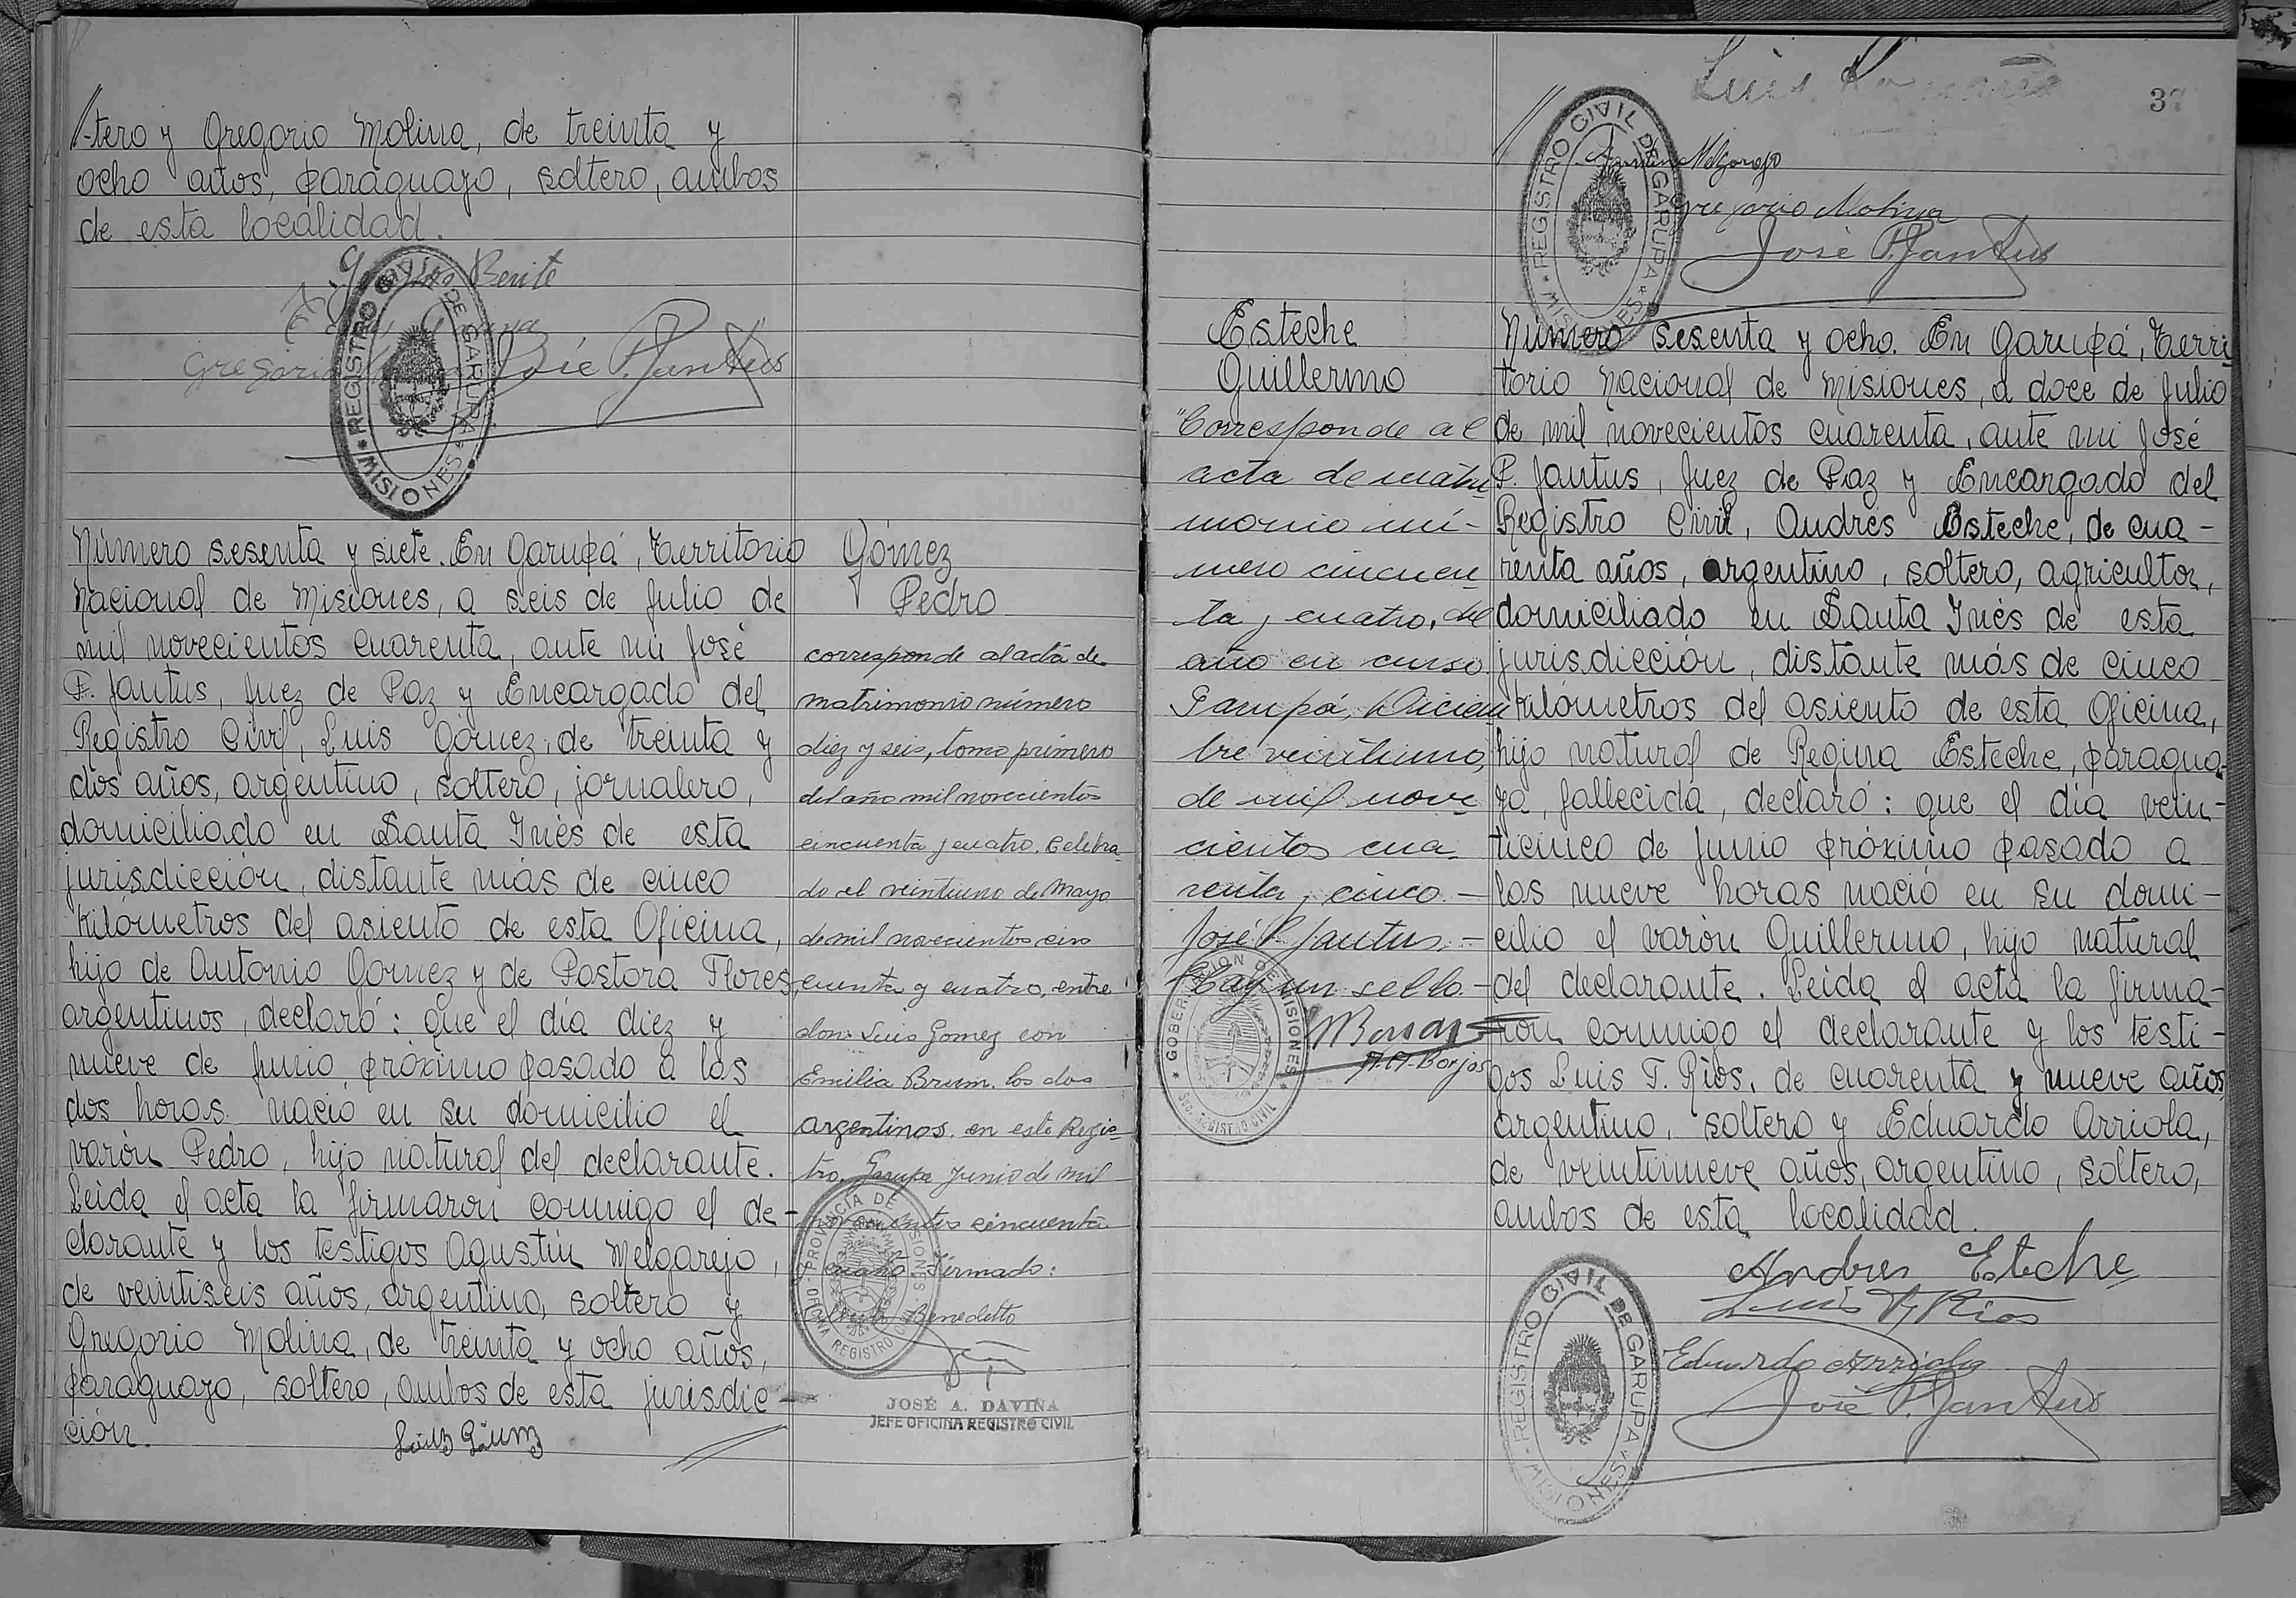 -tero y Gregorio Molina, de treinta y
ocho años, paraguayo, soltero, ambos
de esta localidad.
Benite
Gregorio
José P. Jantus
REGISTRO CIVIL DE GARUPA
MISIONES
Número sesenta y siete. En Garupá, Territorio
Nacional de Misiones, a seis de Julio de
mil novecientos cuarenta, ante mi José
P. Jantus, Juez de Paz y Encargado del
Registro Civil, Luis Gómez, de treinta y
dos años, argentino, soltero, jornalero,
domiciliado en Santa Inés de esta
jurisdicción, distante más de cinco
kilómetros del asiento de esta Oficina,
hijo de Antonio Gomez y de Pastora Flores,
argentinos, declaró: que el día diez y
nueve de Junio, próximo pasado a las
dos horas nació en su domicilio el
varón Pedro, hijo natural del declarante.
Leida el acta la firmaron conmigo el de-
clarante y los testigos Agustín Melgarejo,
de veintiseis años, argentino, soltero y
Gregorio Molina, de treinta y ocho años,
paraguayo, soltero, ambos de esta jurisdic-
ción.
Gómez
Pedro
corresponde al acta de
matrimonio número
diez y seis, tomo primero
del año mil novecientos
cincuenta y cuatro. Celebra
do el veintiuno de Mayo
de mil novecientos cin
cuenta y cuatro, entre
don: Luis Gomez con
Emilia Brum, los dos
argentinos, en este Regis-
tro, Garupa Junio de mil
novecientos cincuenta
y cuatro. Firmado:
Benedetto
PROVINCIA DE MISIONES
OFICINA REGISTRO CIVIL
JOSÉ A. DAVIÑA
JEFE OFICINA REGISTRO CIVIL
37
Luis
REGISTRO CIVIL DE GARUPA
MISIONES
Melgarejo
Gregorio Molina
José P. Jantus
Esteche
Guillermo
"Corresponde al
acta de matri
monio nú-
mero cincuen
ta y cuatro, del
año en curso.
Garupá, Diciem
bre veintiuno,
de mil nove-
cientos cua-
renta y cinco.-
José P. Jantus.-
Hay un sello.-
GOBERNACION DE MISIONES
Sec. REGISTRO CIVIL
Número sesenta y ocho. En Garupá, Terri
torio Nacional de Misiones, a doce de Julio
de mil novecientos cuarenta, ante mi José
P. Jantus, Juez de Paz y Encargado del
Registro Civil, Andrés Esteche, de cua-
renta años, argentino, soltero, agricultor,
domiciliado en Santa Inés de esta
jurisdicción, distante más de cinco
kilómetros del asiento de esta Oficina,
hijo natural de Regina Esteche, paragua-
ya, fallecida, declaró: que el día vein-
ticinco de Junio próximo pasado a
las nueve horas nació en su domi-
cilio el varón Guillermo, hijo natural
del declarante. Leida el acta la firma-
ron conmigo el declarante y los testi-
gos Luis T. Ríos, de cuarenta y nueve años,
argentino, soltero y Eduardo Arriola,
de veintinueve años, argentino, soltero,
ambos de esta localidad.
Andres Eteche
Luis T. Rios
Eduardo Arriola
José P. Jantus
REGISTRO CIVIL DE GARUPA
MISIONES